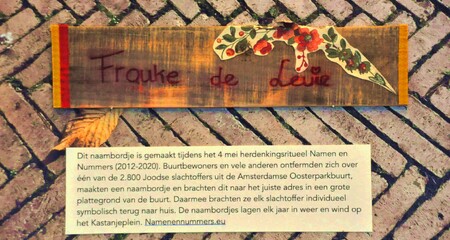 Frouke de Levie
Dit naambordje is gemaakt tijdens het 4 mei herdenkingsritueel Namen en
Nummers (2012-2020). Buurtbewoners en vele anderen ontfermden zich over
één van de 2.800 Joodse slachtoffers uit de Amsterdamse Oosterparkbuurt,
maakten een naambordje en brachten dit naar het juiste adres in een grote
plattegrond van de buurt. Daarmee brachten ze elk slachtoffer individueel
symbolisch terug naar huis. De naambordjes lagen elk jaar in weer en wind op
het Kastanjeplein. Namenennummers.eu